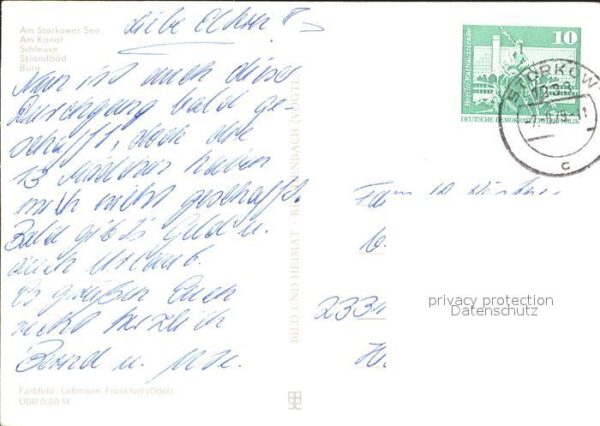 Am Storkower See
Am Kanal
Schleuse
Strandbad
Burg
Liebe Eltern!
Nun ist auch dieser
Durchgang bald ge-
schafft, doch die
13 Mädchen haben
mich nicht geschafft.
Bald gibt's Geld u.
auch Urlaub.
Es grüßen Euch
recht herzlich
Bernd u.
Farbfoto: Lehmann, Frankfurt (Oder)
DDR 0,20 M
BILD UND HEIMAT
10
Berlin, Rathausstraße
DEUTSCHE DEMOKRATISCHE REPUBLIK
STORKOW
c
Fam.
2331
privacy protection
Datenschutz